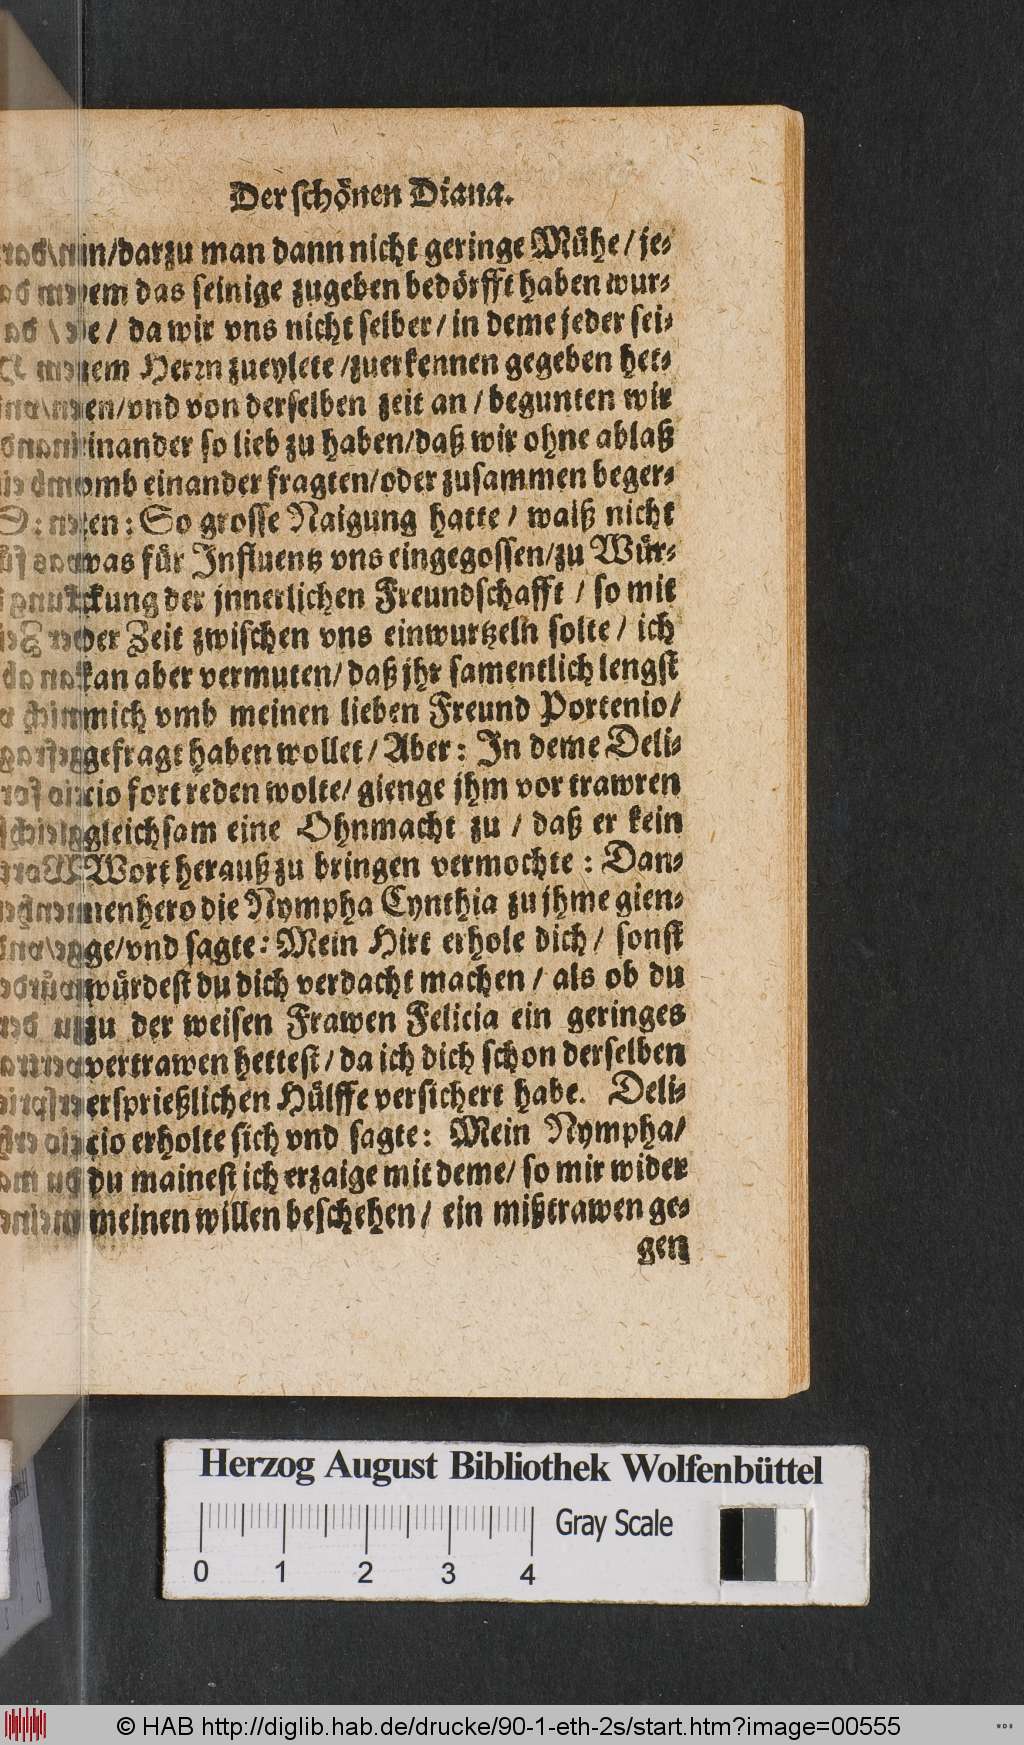 Der schönen Diana.
in/darzu man dann nicht geringe Mühe/ je-
em das seinige zugeben bedörfft haben wur-
e/ da wir vns nicht selber/ in deme jeder sei-
em Herrn zueylete/zuerkennen gegeben het-
en/vnd von derselben zeit an/ begunten wir
inander so lieb zu haben/daß wir ohne ablaß
vmb einander fragten/oder zusammen beger-
en: So grosse Naigung hatte/ waiß nicht
was für Influentz vns eingegossen/zu Wür-
ckung der jnnerlichen Freundschafft/ so mit
der Zeit zwischen vns einwurtzeln solte/ ich
kan aber vermuten/ daß jhr samentlich lengst
mich vmb meinen lieben Freund Portenio/
gefragt haben wollet/ Aber: In deme Deli-
cio fort reden wolte/ gienge jhm vor trawren
gleichsam eine Ohnmacht zu/ daß er kein
Wort herauß zu bringen vermochte: Dan-
nenhero die Nympha Cynthia zu jhme gien-
ge/vnd sagte: Mein Hirt erhole dich/ sonst
würdest du dich verdacht machen/ als ob du
zu der weisen Frawen Felicia ein geringes
vertrawen hettest/ da ich dich schon derselben
ersprießlichen Hülffe versichert habe. Deli-
cio erholte sich vnd sagte: Mein Nympha/
du mainest ich erzaige mit deme/ so mir wider
meinen willen beschehen/ ein mißtrawen ge-
gen
Herzog August Bibliothek Wolfenbüttel
0 1 2 3 4 Gray Scale
© HAB http://diglib.hab.de/drucke/90-1-eth-2s/start.htm?image=00555